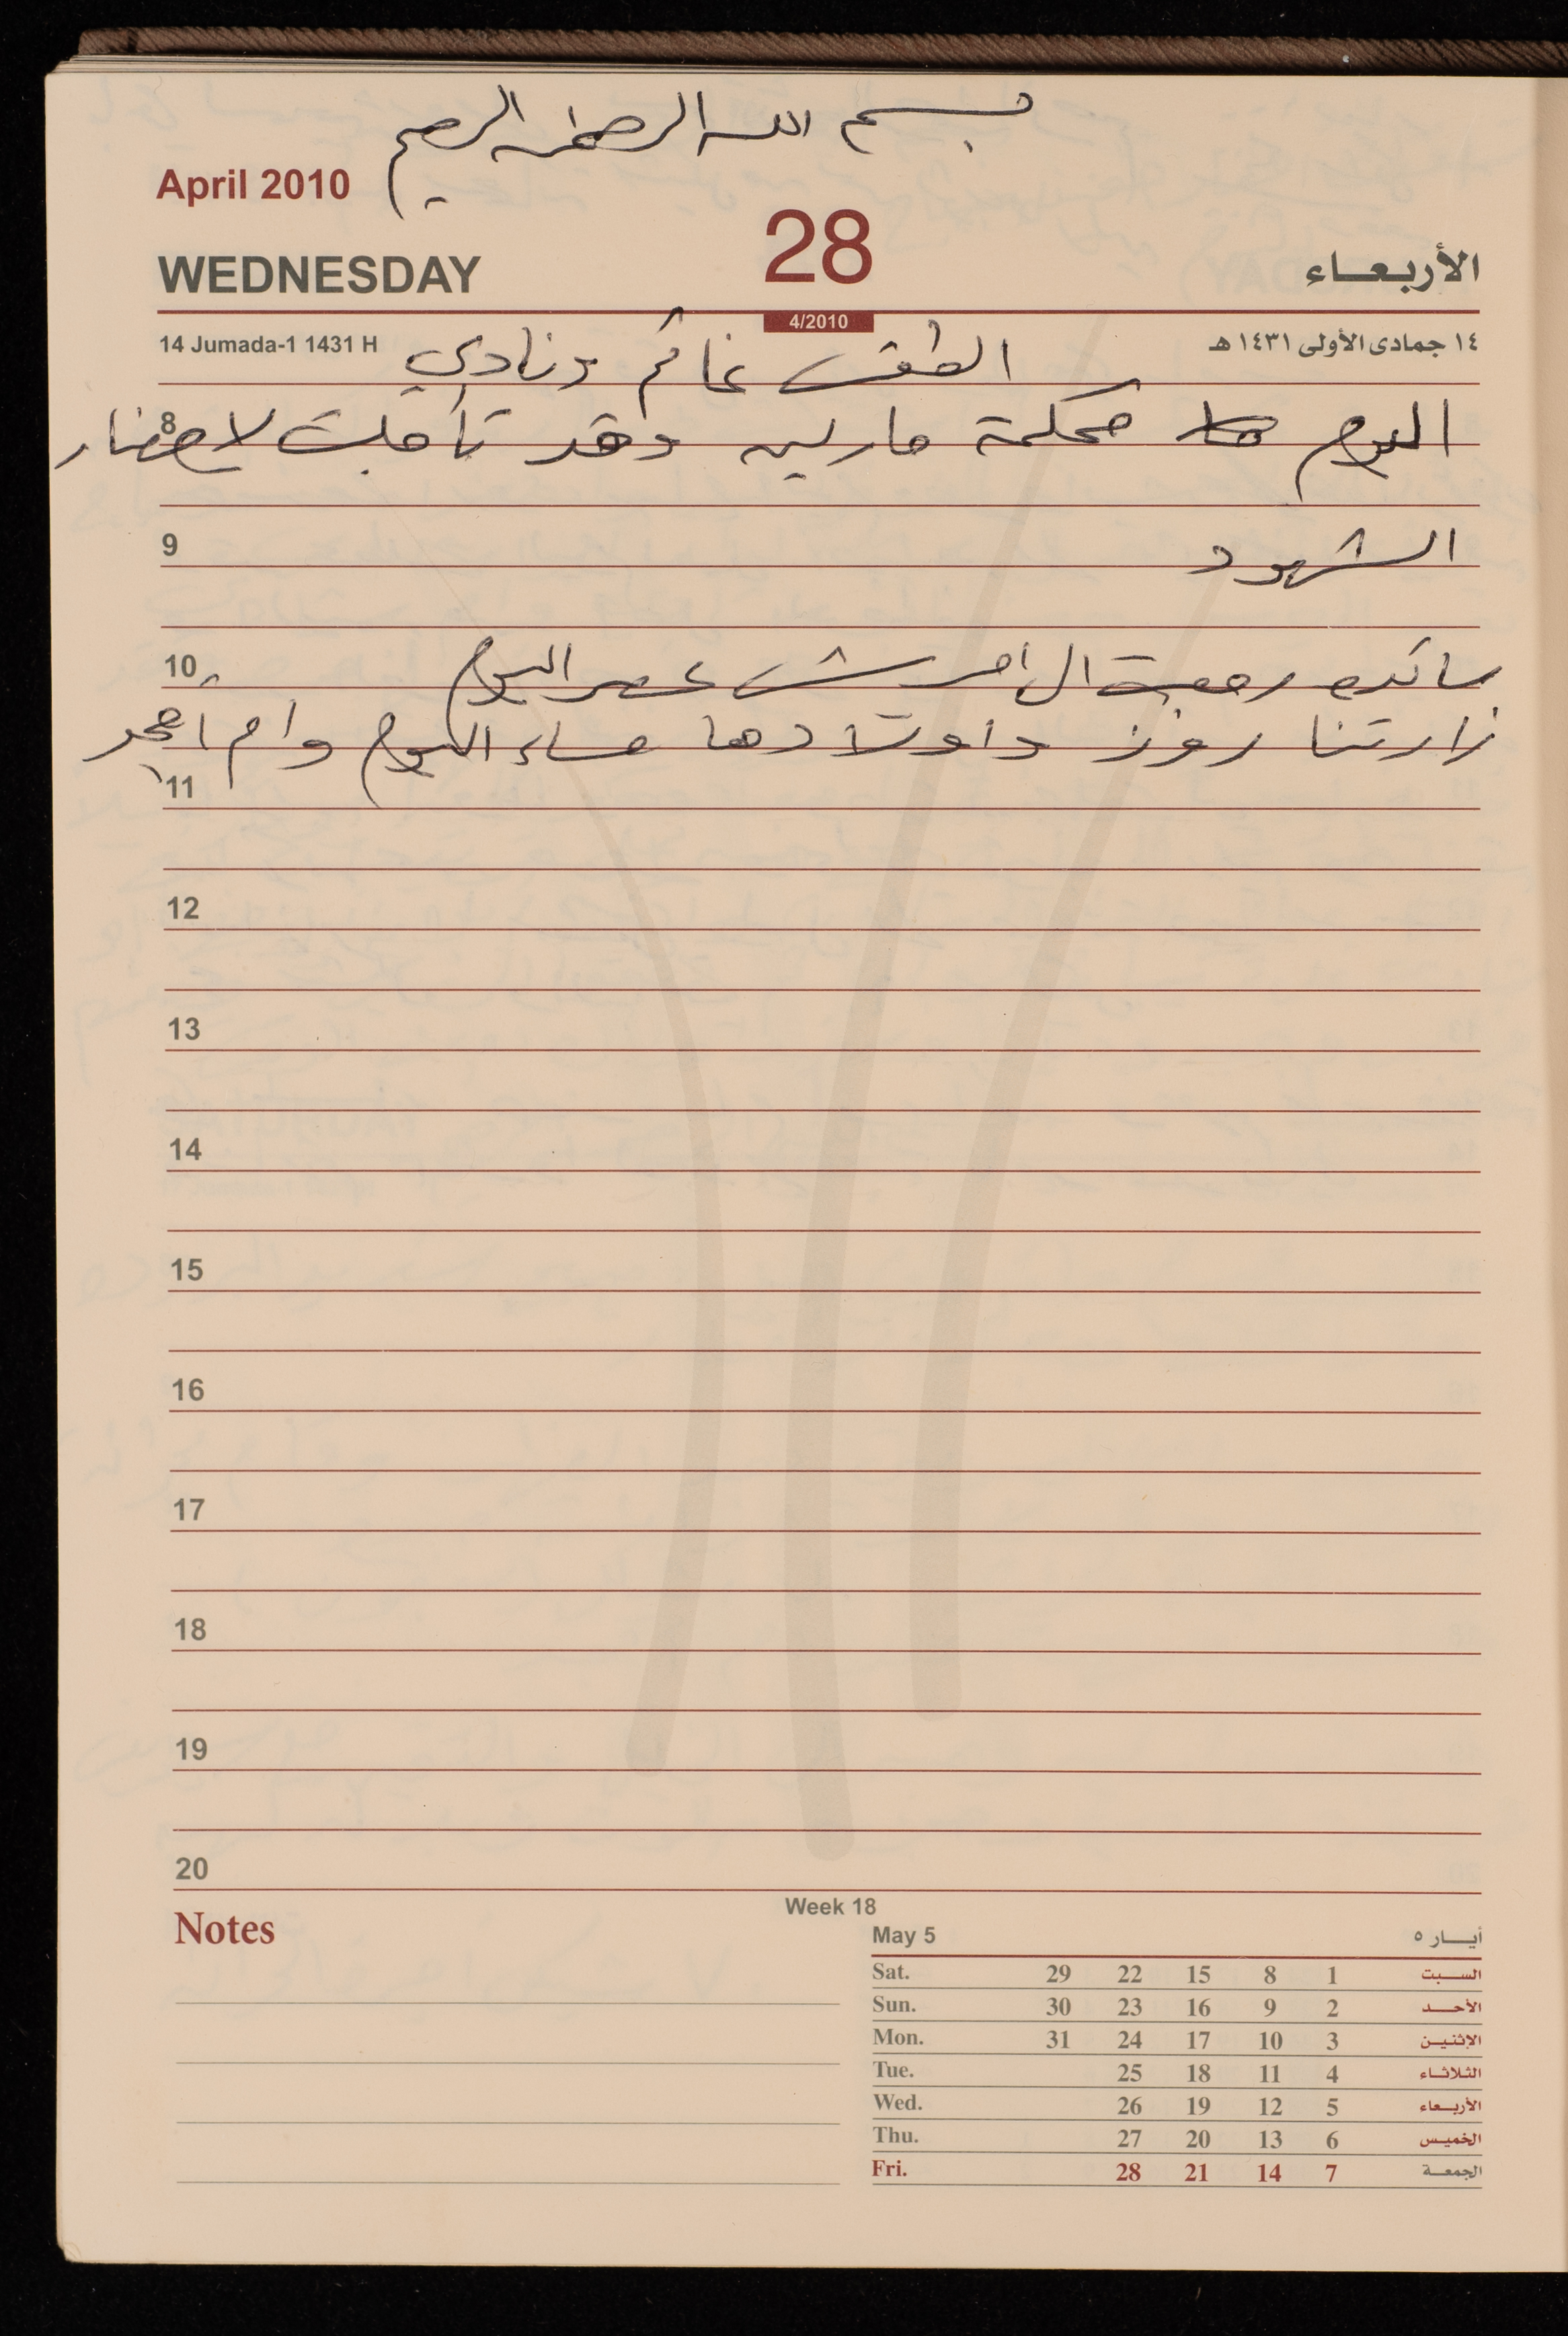 بسم الله الرحمن الرحيم
April 2010
28
WEDNESDAY
الأربعاء
4/2010
14 Jumada-1 1431 H
١٤ جمادى الأولى ١٤٣١ هـ
الطقس غائم ونادي
8 اليوم محكمة مارلين وقد تأجلت لاحضار
9 الشهود
10 رجعت ال امرش عصر اليوم
زارتنا روز واولادها مساء اليوم وام أمجد
11
12
13
14
15
16
17
18
19
20
Notes
Week 18
May 5 أيار ٥
Sat. 29 22 15 8 1 السبت
Sun. 30 23 16 9 2 الأحد
Mon. 31 24 17 10 3 الإثنين
Tue. 25 18 11 4 الثلاثاء
Wed. 26 19 12 5 الأربعاء
Thu. 27 20 13 6 الخميس
Fri. 28 21 14 7 الجمعة